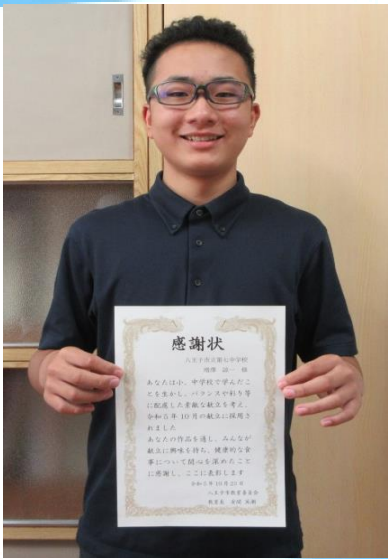 感謝状
八王子市立第七中学校
あなたは小、中学校で学んだこ
とを生かし、バランスや彩り等
に配慮した素敵な献立を考え、
令和5年10月の献立に採用さ
れました
あなたの作品を通し、みんなが
献立に興味を持ち、健康的な食
事について関心を深めたこと
に感謝し、ここに表彰します
令和5年10月23日
八王子市教育委員会
教育長